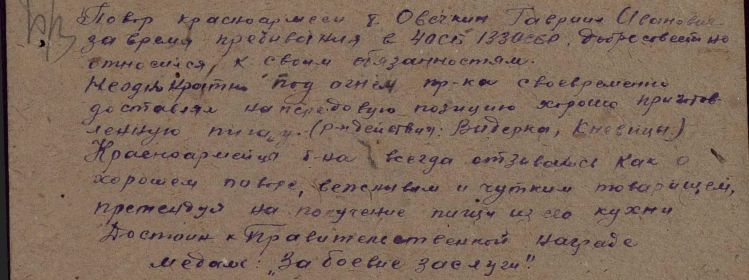 Повар красноармеец т. Овечкин Гавриил Иванович
за время пребывания в 4 ОСБ 133 ОСБР. добросовестно
относился к своим обязанностям.
Неоднократно под огнём пр-ка своевременно
доставлял на передовую позицию хорошо приготов-
ленную пищу. (р-н действия: Видерка, Кневицы)
Красноармейцы б-на всегда отзывались как о
хорошем поваре, вежливым и чутким товарищем,
претендуя на получение пищи из его кухни
Достоин к Правительственной награде
медаль: „За боевые заслуги".